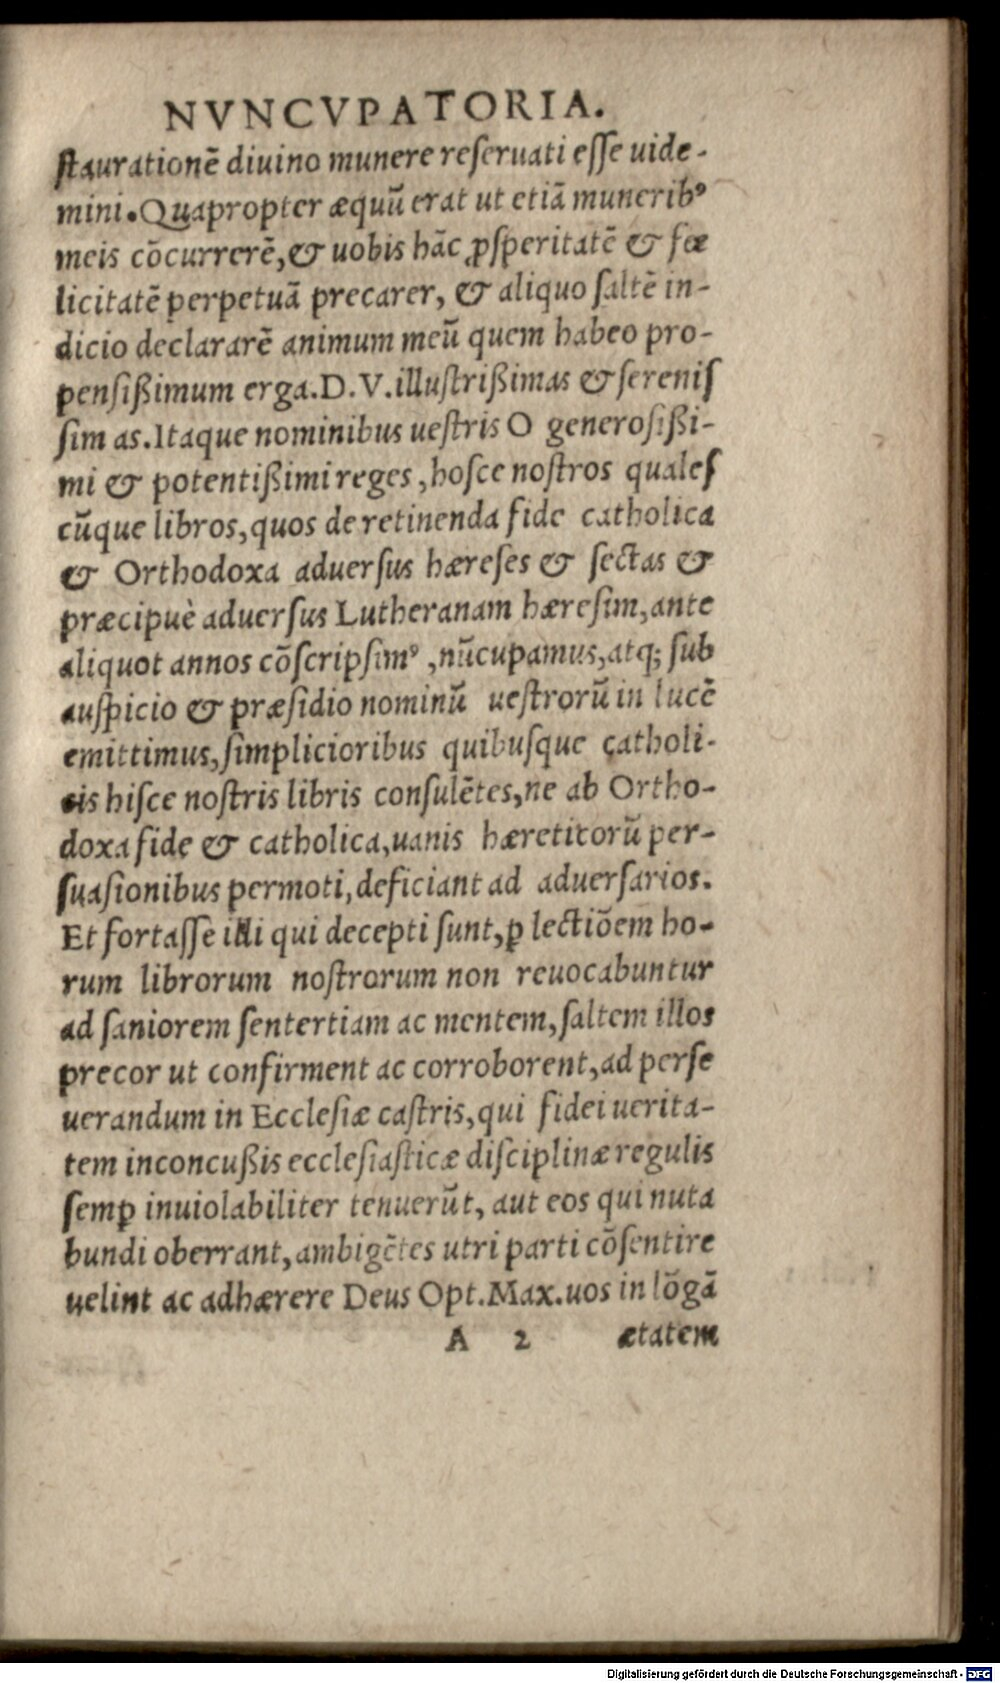 NVNCVPATORIA.
ſtaurationē diuino munere reſeruati eſſe uide-
mini. Quapropter æquū erat ut etiā munerib⁹
meis cōcurrerē, & uobis hāc ꝓſperitatē & fœ
licitatē perpetuā precarer, & aliquo ſaltē in-
dicio declararē animum meū quem habeo pro-
penſißimum erga. D. V. illuſtrißimas & ſereniſ
ſim as. Itaque nominibus ueſtris O generoſißi-
mi & potentißimi reges, hoſce noſtros qualeſ
cūque libros, quos de retinenda fide catholica
& Orthodoxa aduerſus hæreſes & ſectas &
præcipuè aduerſus Lutheranam hæreſim, ante
aliquot annos cōſcripſim⁹, nūcupamus, atq; ſub
auſpicio & præſidio nominū ueſtrorū in lucē
emittimus, ſimplicioribus quibuſque catholi-
cis hiſce noſtris libris conſulētes, ne ab Ortho-
doxa fide & catholica, uanis hæretitorū per-
ſuaſionibus permoti, deficiant ad aduerſarios.
Et fortaſſe illi qui decepti ſunt, ꝑ lectiōem ho-
rum librorum noſtrorum non reuocabuntur
ad ſaniorem ſentertiam ac mentem, ſaltem illos
precor ut confirment ac corroborent, ad perſe
uerandum in Eccleſiæ caſtris, qui fidei uerita-
tem inconcußis eccleſiaſticæ diſciplinæ regulis
ſemꝑ inuiolabiliter tenuerūt, aut eos qui nuta
bundi oberrant, ambigētes utri parti cōſentire
uelint ac adhærere Deus Opt. Max. uos in lōgā
A 2 ætatem
Digitalisierung gefördert durch die Deutsche Forschungsgemeinschaft - DFG